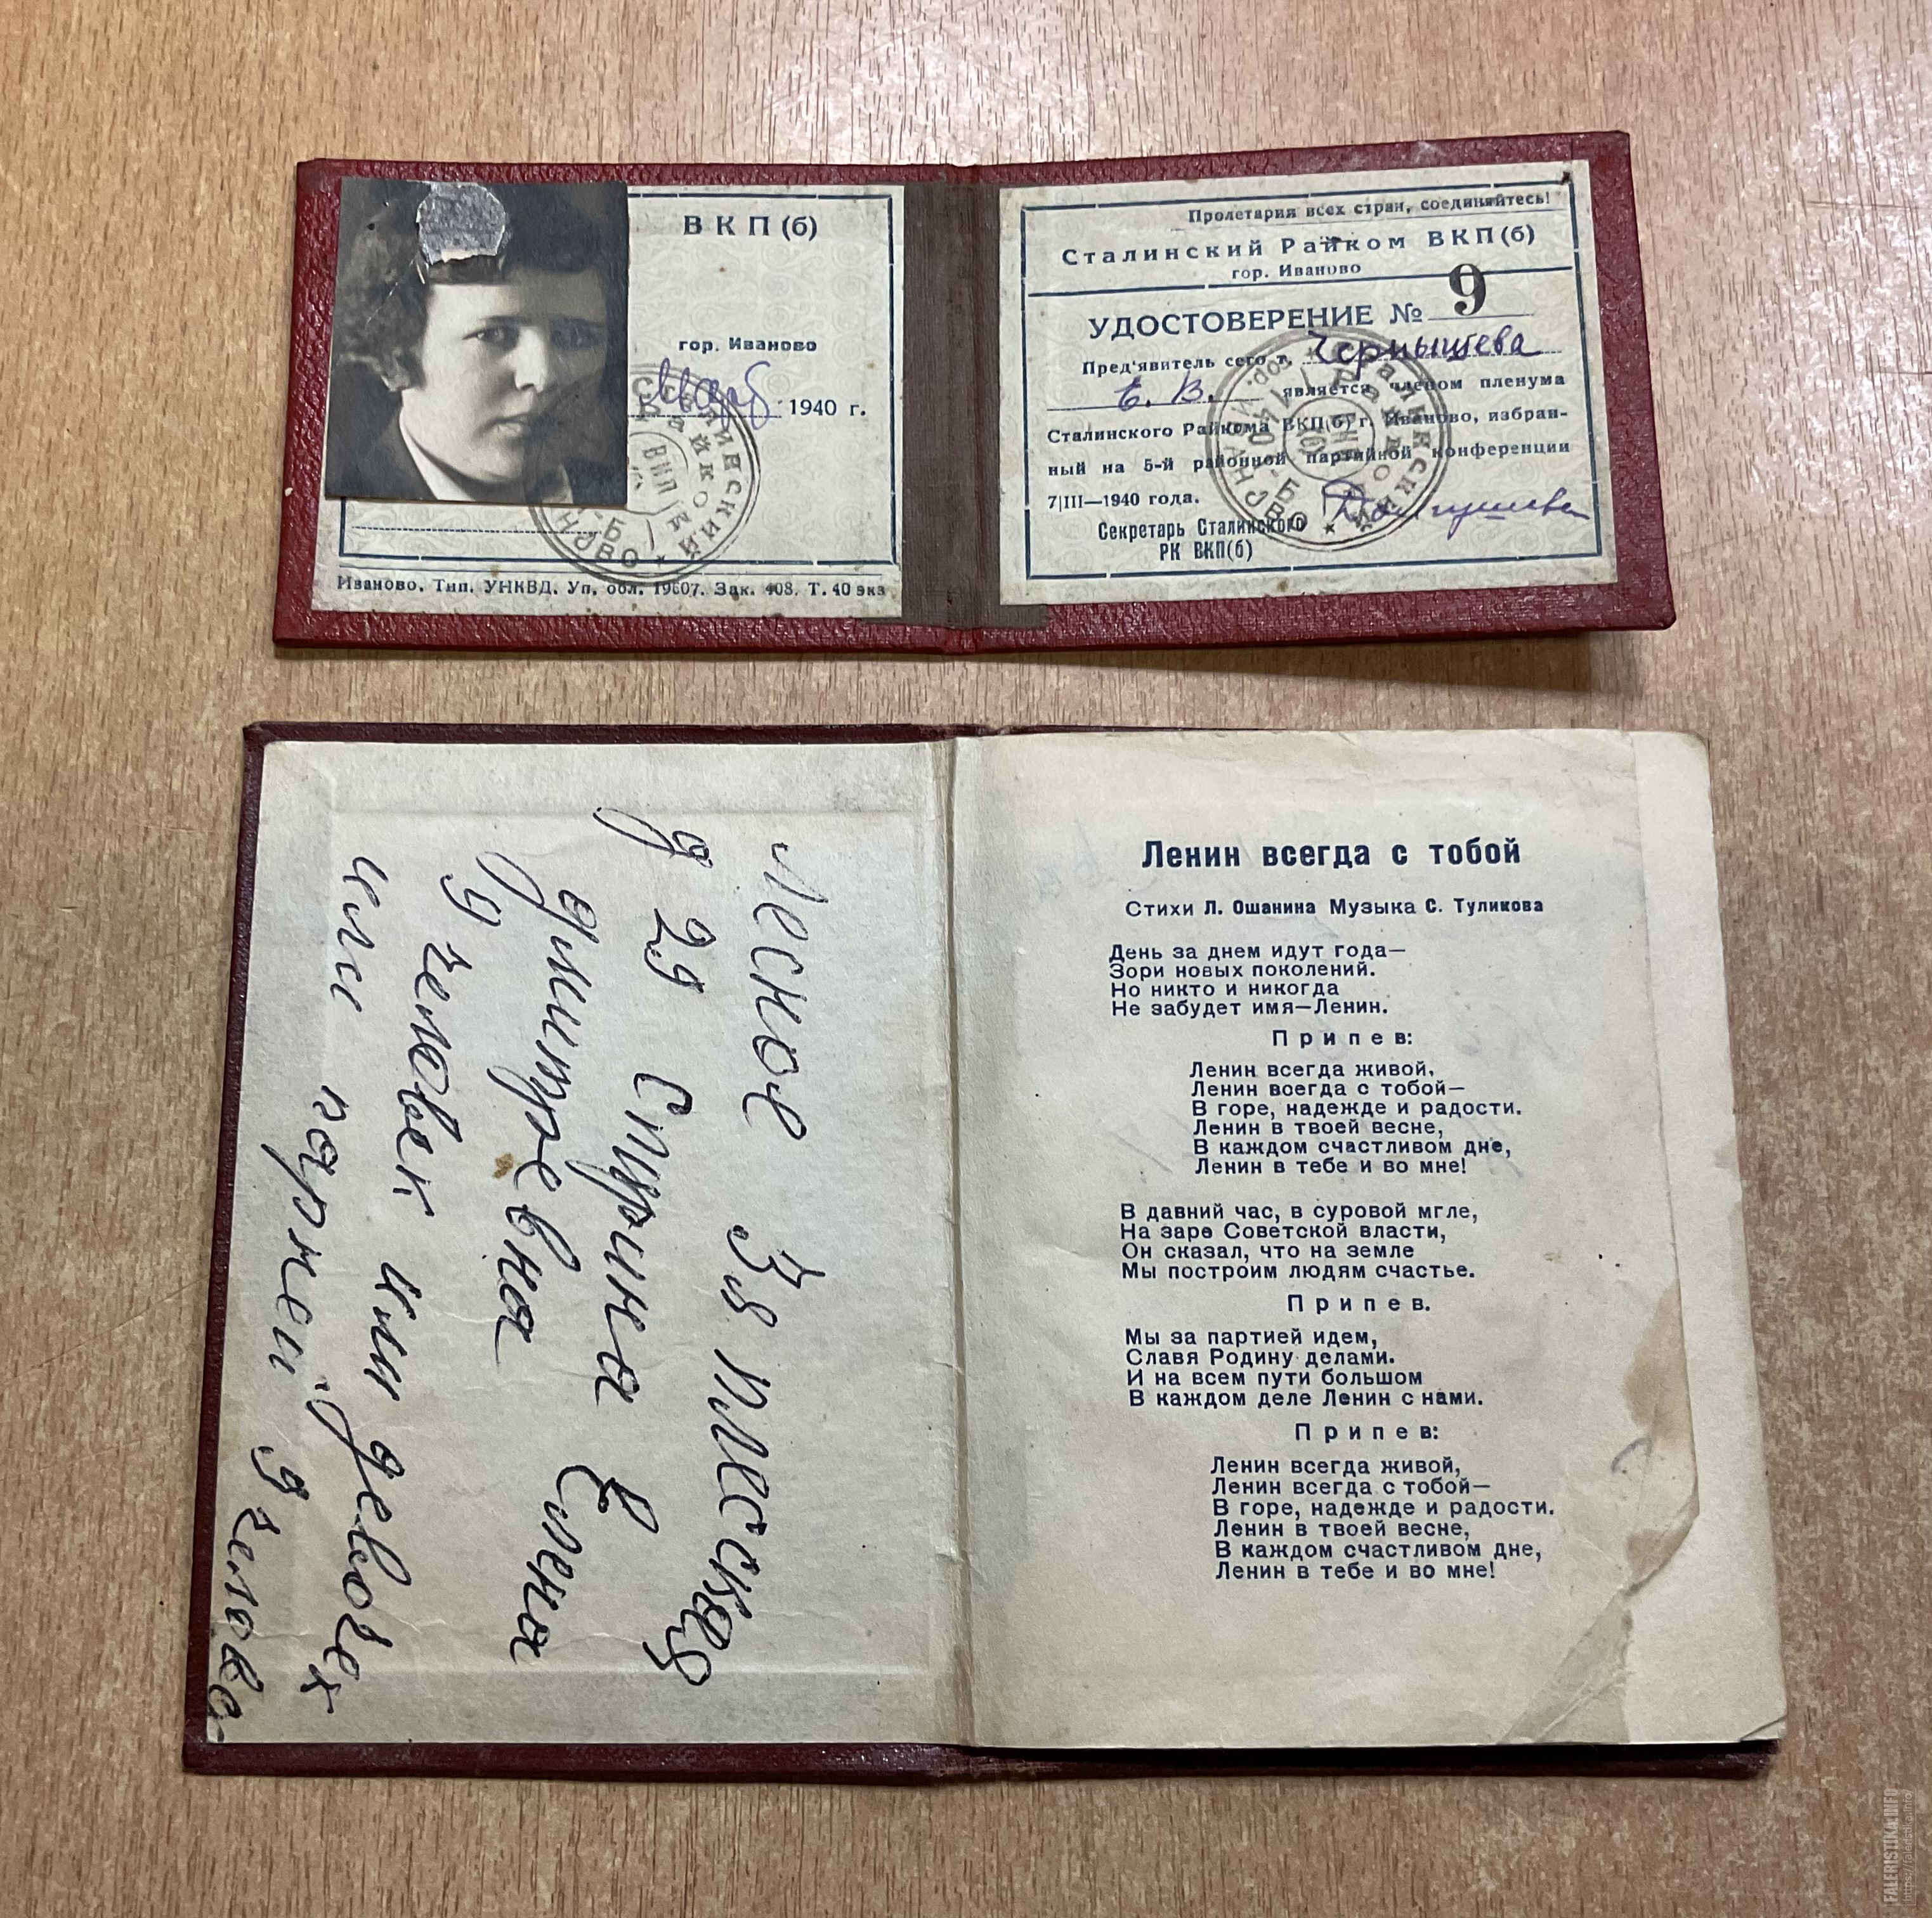 ВКП(б)
гор. Иваново
1940 г.
Иваново. Тип. УНКВД. Уп. обл. 19607. Зак. 408. Т. 40 экз
Пролетарии всех стран, соединяйтесь!
Сталинский Райком ВКП(б)
гор. Иваново
УДОСТОВЕРЕНИЕ № 9
Пред'явитель сего т. Чернышева
Е. В. является членом пленума
Сталинского Райкома ВКП(б) г. Иваново, избран-
ный на 5-й районной партийной конференции
7|III—1940 года.
Секретарь Сталинского
РК ВКП(б)
Лесное
Спирина Елена
9 человек
парней 9 челове
Ленин всегда с тобой
Стихи Л. Ошанина Музыка С. Туликова
День за днем идут года—
Зори новых поколений.
Но никто и никогда
Не забудет имя—Ленин.
Припев:
Ленин всегда живой,
Ленин всегда с тобой—
В горе, надежде и радости.
Ленин в твоей весне,
В каждом счастливом дне,
Ленин в тебе и во мне!
В давний час, в суровой мгле,
На заре Советской власти,
Он сказал, что на земле
Мы построим людям счастье.
Припев.
Мы за партией идем,
Славя Родину делами.
И на всем пути большом
В каждом деле Ленин с нами.
Припев:
Ленин всегда живой,
Ленин всегда с тобой—
В горе, надежде и радости.
Ленин в твоей весне,
В каждом счастливом дне,
Ленин в тебе и во мне!
FALERISTIKA.INFO
https://faleristika.info